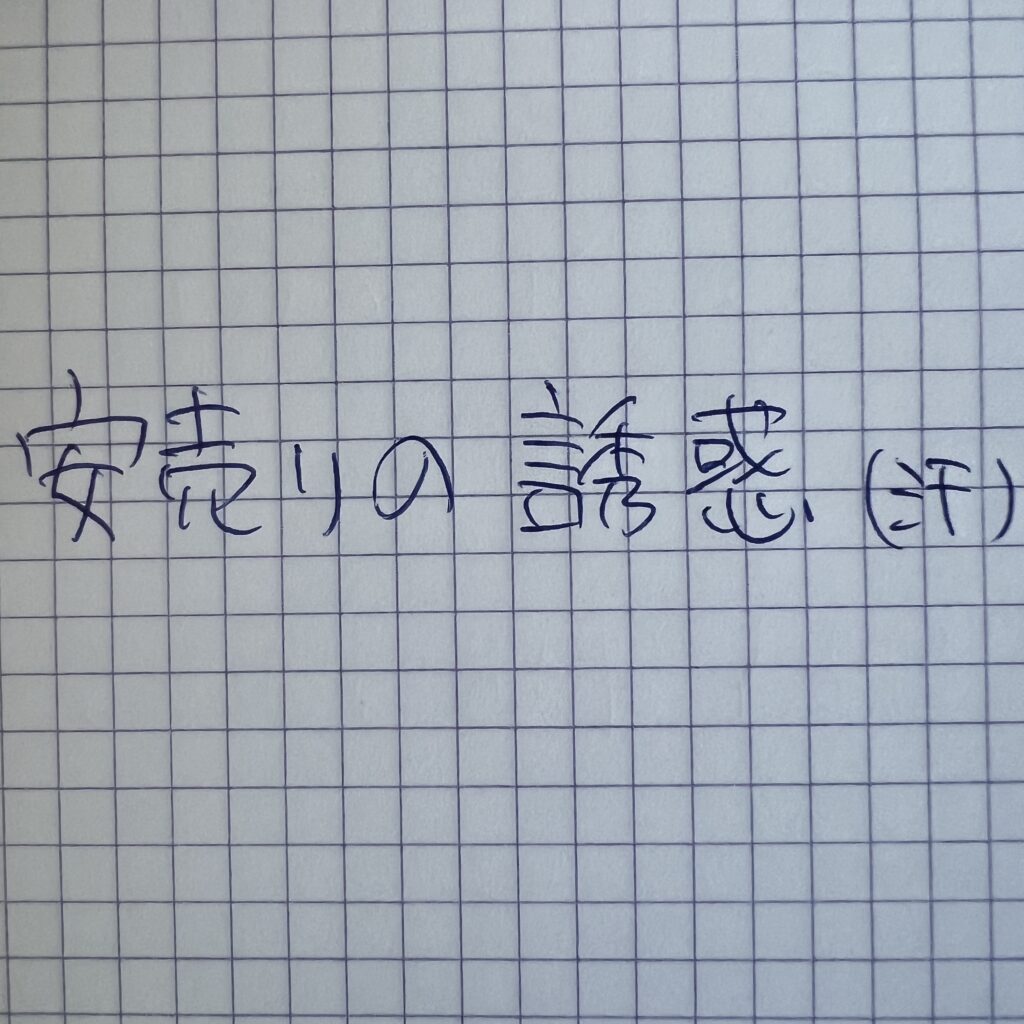 安売りの誘惑(汗)